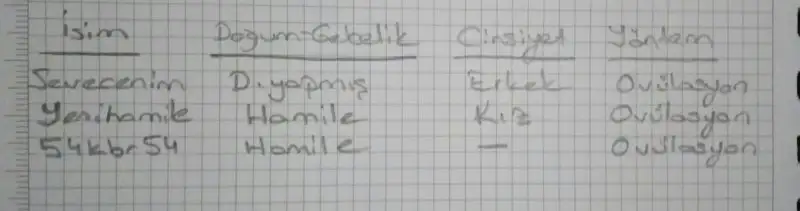 İsim Doğum-Gebelik Cinsiyet Yöntem
Sevecenim D.yapmış Erkek Ovülasyon
Yenihamile Hamile Kız Ovülasyon
54kbr54 Hamile — Ovülasyon